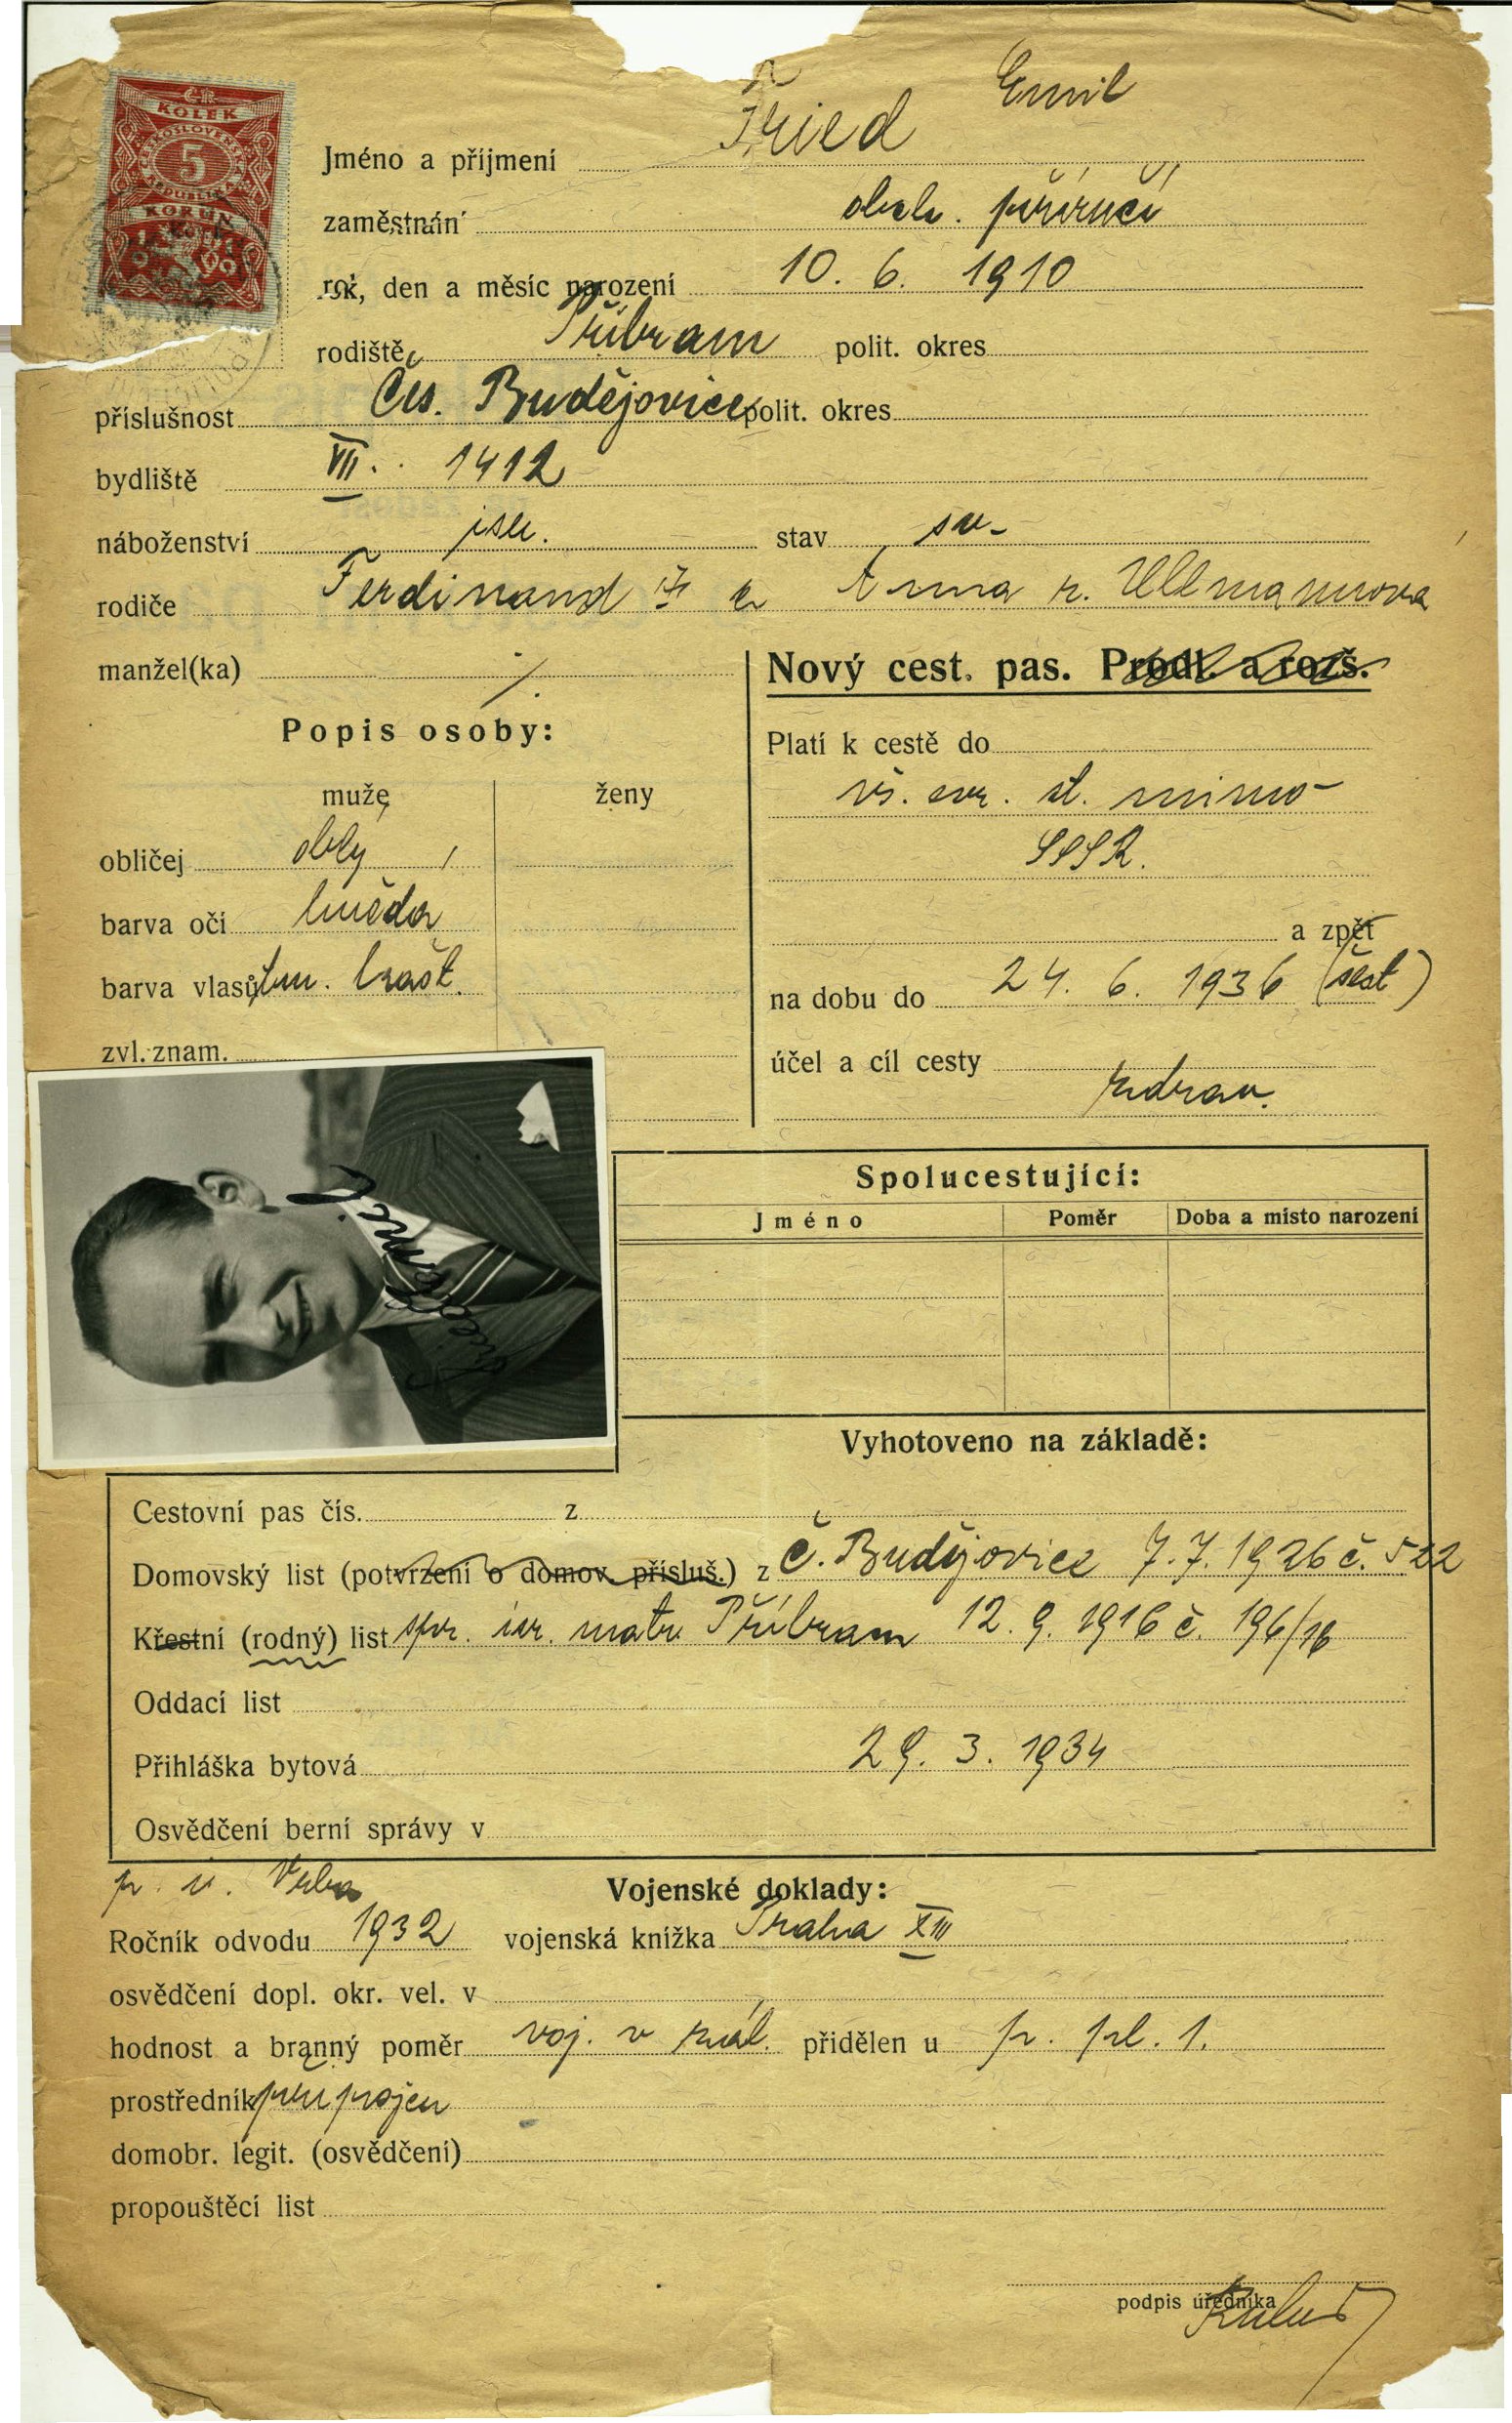 KOLEK
ČESKOSLOVENSKÁ
5
REPUBLIKA
KORUN
Fried Emil
Jméno a příjmení
zaměstnání obch. příručí
rok, den a měsíc narození 10. 6. 1910
rodiště Příbram polit. okres
příslušnost Čes. Budějovice polit. okres
bydliště VII. 1412
náboženství isr. stav sv.
rodiče Ferdinand a Anna r. Ullmannova
manžel(ka) /.
Nový cest. pas. Prodl. a rozš.
Popis osoby:
Platí k cestě do
muže ženy
vš. evr. st. mimo
obličej oblý
SSSR.
barva očí hnědá
a zpět
barva vlasů tm. kašt.
na dobu do 24. 6. 1936 (šest)
zvl. znam.
účel a cíl cesty
zdrav.
Fried Emil
Spolucestující:
Jméno Poměr Doba a místo narození
Vyhotoveno na základě:
Cestovní pas čís. z
Domovský list (potvrzení o domov. přísluš.) z Č. Budějovice 7. 7. 1926 č. 522
Křestní (rodný) list spr. isr. matr. Příbram 12. 9. 1916 č. 196/16
Oddací list
Přihláška bytová 29. 3. 1934
Osvědčení berní správy v
Vrba
Vojenské doklady:
Ročník odvodu 1932 vojenská knížka Praha XIII
osvědčení dopl. okr. vel. v
hodnost a branný poměr voj. v zál. přidělen u p. pl. 1.
prostředník připojen
domobr. legit. (osvědčení)
propouštěcí list
podpis úředníka